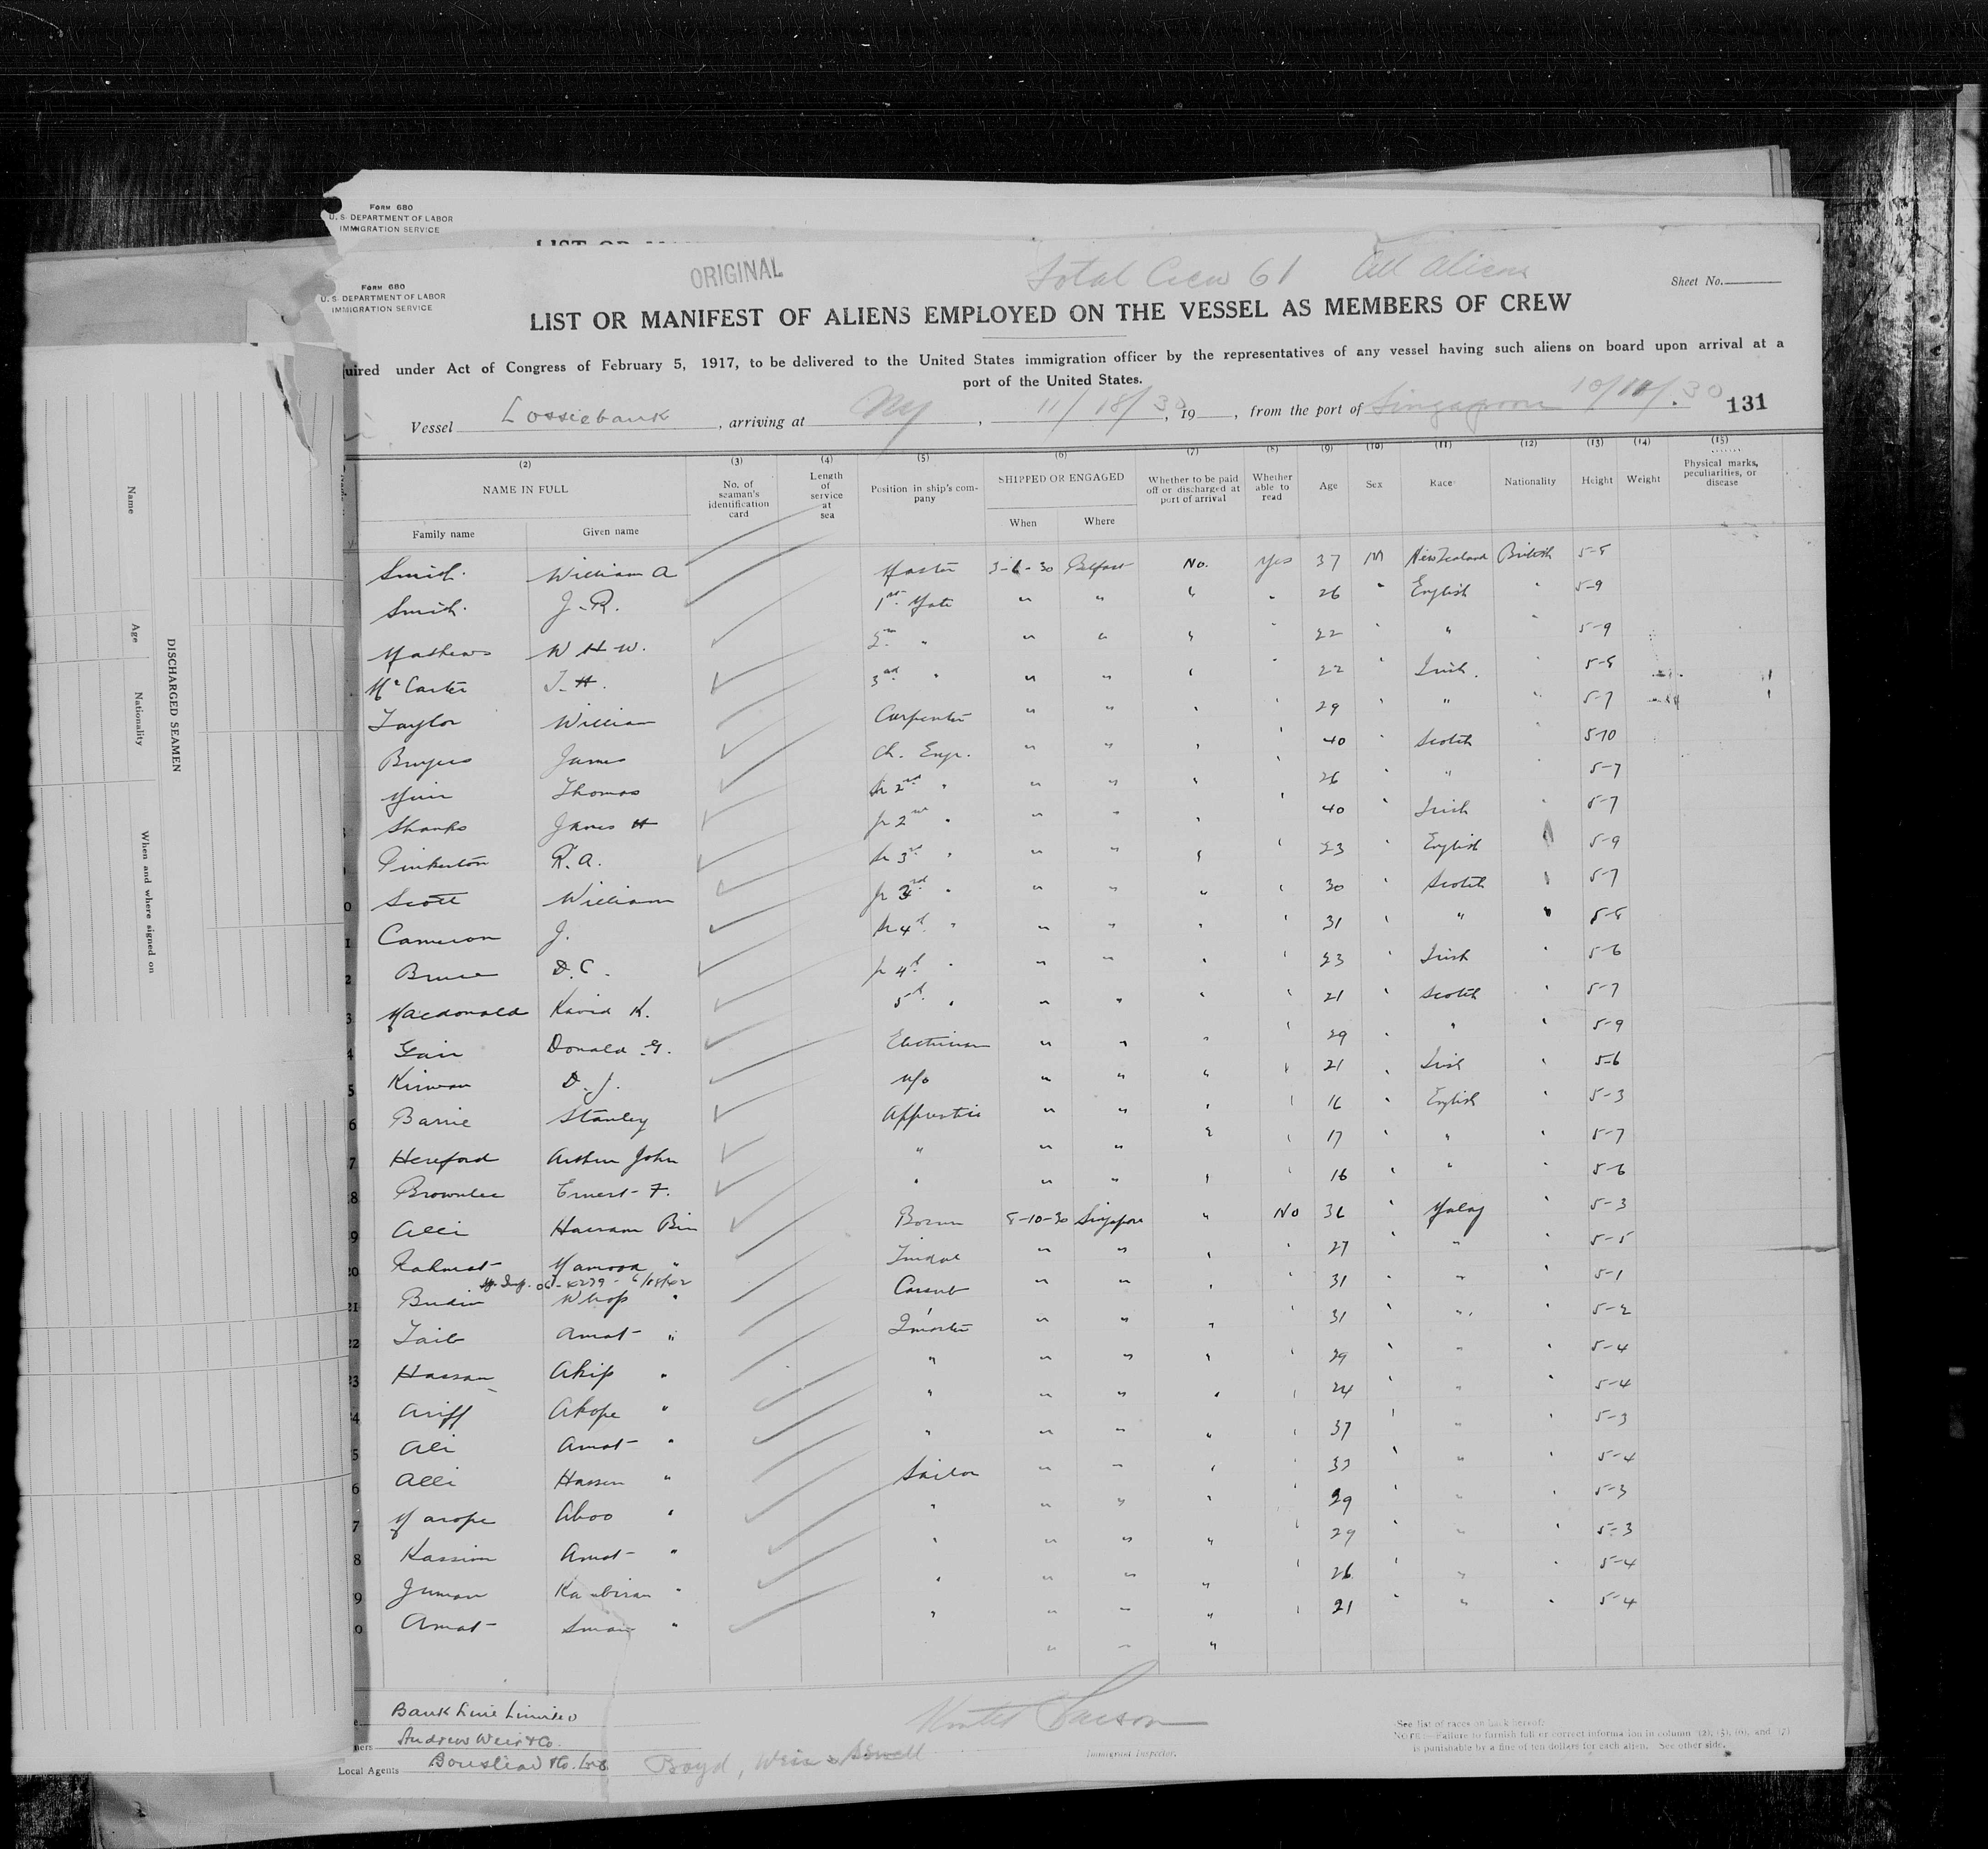 FORM 680
U. S. DEPARTMENT OF LABOR
IMMIGRATION SERVICE
FORM 680
U. S. DEPARTMENT OF LABOR
IMMIGRATION SERVICE
ORIGINAL
Total Crew 61 All Aliens
Sheet No.
LIST OR MANIFEST OF ALIENS EMPLOYED ON THE VESSEL AS MEMBERS OF CREW
uired under Act of Congress of February 5, 1917, to be delivered to the United States immigration officer by the representatives of any vessel having such aliens on board upon arrival at a
port of the United States.
Vessel Lossiebank , arriving at NY , 11/18/30 , 19 , from the port of Singapore 10/10/.30 131
(2) (3) (4) (5) (6) (7) (8) (9) (10) (11) (12) (13) (14) (15)
NAME IN FULL No. of seaman's identification card Length of service at sea Position in ship's company SHIPPED OR ENGAGED Whether to be paid off or discharged at port of arrival Whether able to read Age Sex Race Nationality Height Weight Physical marks, peculiarities, or disease
Family name Given name When Where
Smith William A Master 3-6-30 Belfast No. Yes 37 M New Zealand British 5-8
Smith J. R. 1st Mate " " " " 26 " English " 5-9
Mathews W H W. 2nd " " " " " 22 " " " 5-9
McCarter J. H. 3rd " " " " " 22 " Irish " 5-8
Taylor William Carpenter " " " " 29 " " " 5-7
Bruyers James Ch. Engr. " " " " 40 " Scotch " 5-10
Muir Thomas Sr 2nd " " " " " 26 " " " 5-7
Shanks James H Jr 2nd " " " " " 40 " Irish " 5-7
Pinkerton R. A. Sr 3rd " " " " " 23 " English " 5-9
Scott William Jr 3rd " " " " " 30 " Scotch " 5-7
Cameron J. Sr 4th " " " " " 31 " " " 5-8
Bruce D. C. Jr 4th " " " " " 23 " Irish " 5-6
Macdonald David K. 5th " " " " " 21 " Scotch " 5-7
Gair Donald G. Electrician " " " " 29 " " " 5-9
Kirwan D. J. W/o " " " " 21 " Irish " 5-6
Barrie Stanley Apprentice " " " " 16 " English " 5-3
Hereford Arthur John " " " " " 17 " " " 5-7
Brownlee Ernest F. " " " " " 16 " " " 5-6
Alli Hassam Bin Bosun 8-10-30 Singapore " No 36 " Malay " 5-3
Rahmat Mamood " Tindal " " " " 27 " " " 5-5
Budin " Cassab " " " " 31 " " " 5-1
Taib Amat " Q'master " " " " 31 " " " 5-2
Hassan Akip " " " " " " 29 " " " 5-4
Ariff Akope " " " " " " 24 " " " 5-4
Ali Amat " " " " " " 37 " " " 5-3
Alli Hassen " Sailor " " " " 33 " " " 5-4
Marope Aboo " " " " " " 29 " " " 5-3
Kassim Amat " " " " " " 29 " " " 5-3
Juman " " " " " " 26 " " " 5-4
Amat Sman " " " " " " 21 " " " 5-4
Bank Line Limited
Andrew Weir & Co.
Local Agents Boustead & Co. Ltd. Boyd, Weir & Sewell
Immigrant Inspector.
See list of races on back hereof.
NOTE.—Failure to furnish full or correct information in column (2), (5), (6), and (7)
is punishable by a fine of ten dollars for each alien. See other side.
DISCHARGED SEAMEN
Name
Age
Nationality
When and where signed on